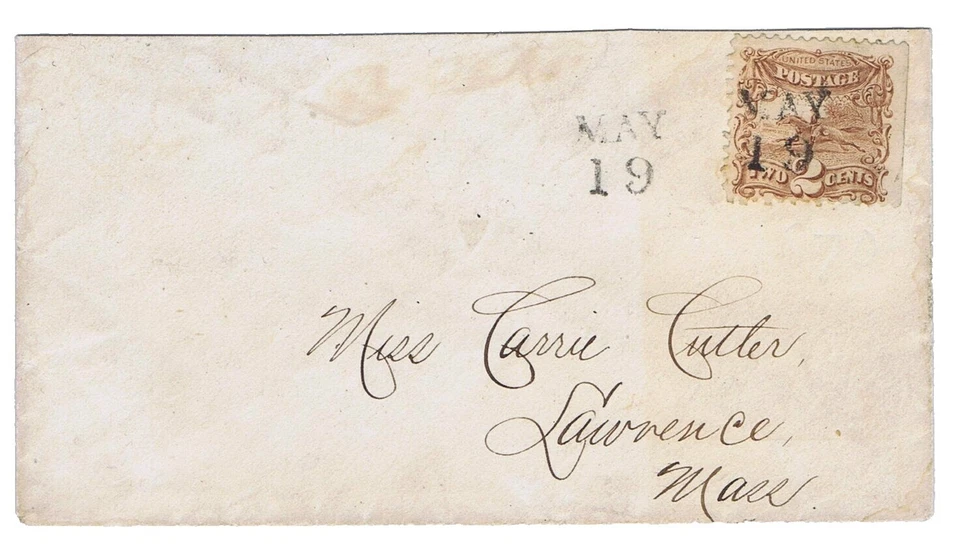 UNITED STATES
POSTAGE
MAY
19
MAY
19
TWO 2 CENTS
Miss Carrie Cutler,
Lawrence,
Mass